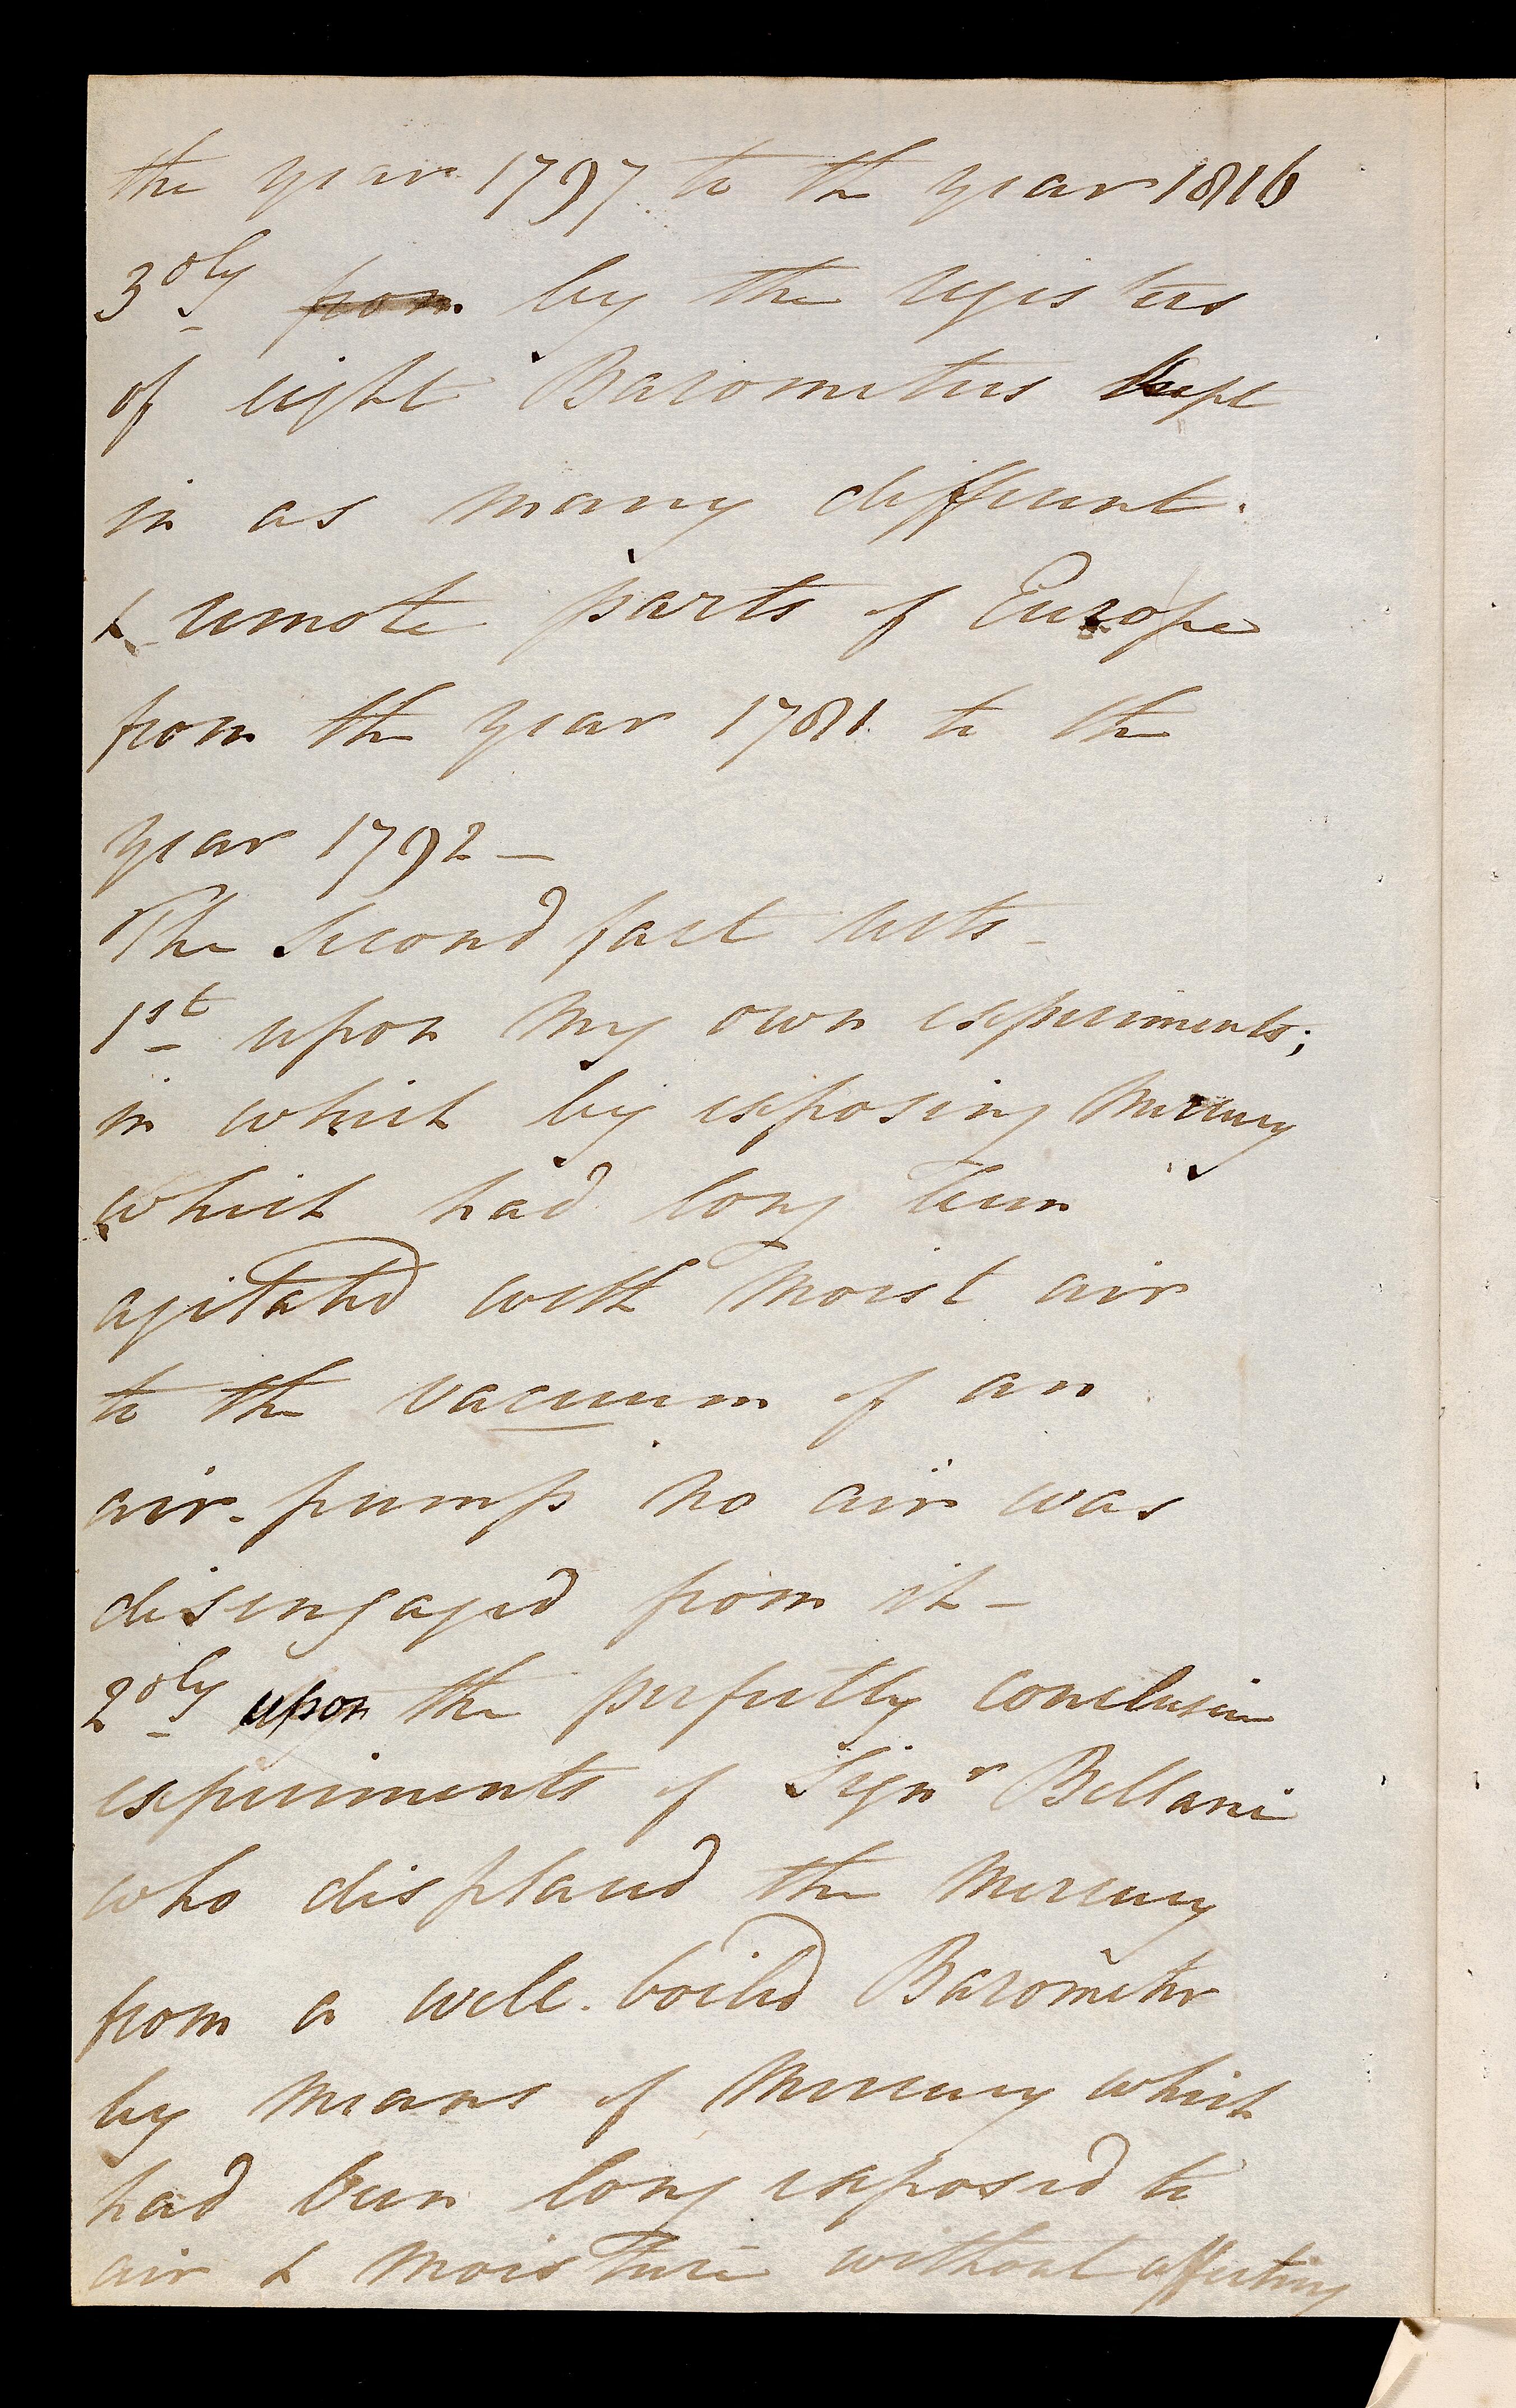 the year 1797 to the year 1816
3dly from by the registers
of eight Barometers kept
in as many different
& remote parts of Europe
from the year 1781 to the
year 1792 —
The second fact rests —
1st upon my own experiments;
in which by exposing Mercury
which had long been
agitated with moist air
to the vacuum of an
air-pump no air was
disengaged from it —
2dly upon the perfectly conclusive
experiments of Signr Bellani
who displaced the Mercury
from a well-boiled Barometer
by means of Mercury which
had been long exposed to
air & moisture without affecting